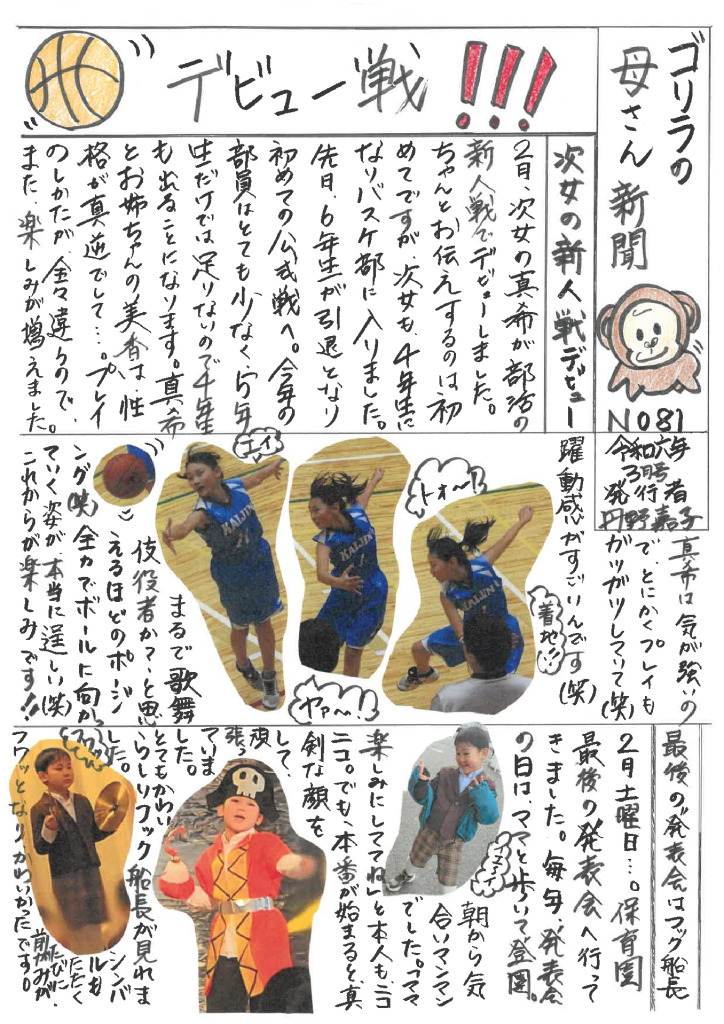 ゴリラの
母さん新聞
N081
令和六年
3月号
発行者
丹野嘉子
デビュー戦!!!
次女の新人戦デビュー
2月、次女の真希が部活の
新人戦でデビューしました。
ちゃんとお伝えするのは初
めてですが、次女も、4年生に
なりバスケ部に入りました。
先日、6年生が引退となり
初めての公式戦へ。今年の
部員はとても少なく、5年
生だけでは足りないので4年生
も出ることになります。真希
とお姉ちゃんの美香は、性
格が真逆でして…。プレイ
のしかたが全々違うので、
また、楽しみが増えました。
真希は気が強いの
で、とにかくプレイも
ガツガツしていて(笑)
躍動感がすごいんです(笑)
トォー!
着地!!
ヤァ〜!
エイ
KAIJIN
KAIJIN
まるで歌舞
伎役者か?と思
えるほどのポージ
ング(笑)全力でボールに向かっ
ていく姿が、本当に逞しい(笑)
これからが楽しみです!!
最後の発表会はフック船長
2月土曜日…。保育園
最後の発表会へ行って
きました。毎年、発表会
の日は、ママと歩いて登園。
朝から気
合いマンマン
でした。「ママ
楽しみにしててね」と本人も、ニコ
ニコ。でも、本番が始まると、真
剣な顔を
して、
頑
張っ
ていま
した。
とてもかわい
らしいフック船長が見れま
した。
シンバ
ルも
たたく
たびに、
前がみが、
フワッとなりかわいかったです。